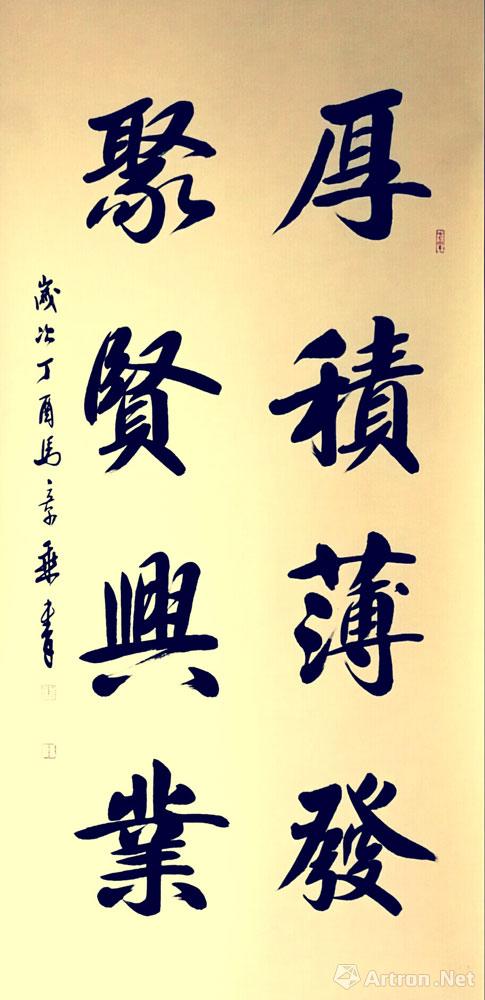 厚積薄發
聚賢興業
歲次丁酉馬章乘書
Artron.Net